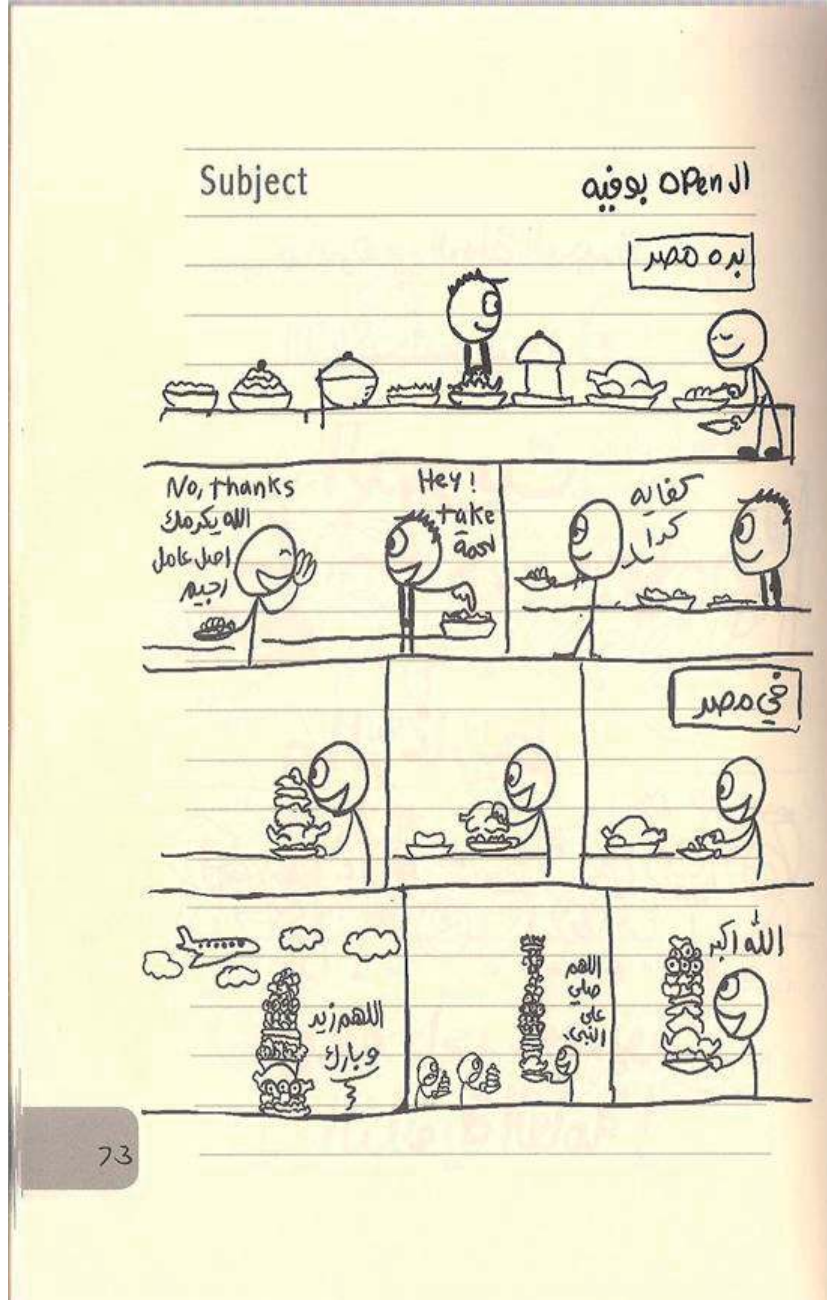 Subject
ال open بوفيه
بره مصر
كفايه
كدا
Hey!
take
No, thanks
الله يكرمك
اصل عامل
رجيم
في مصر
الله اكبر
اللهم
صلي
على
النبي
اللهم زيد
وبارك
73